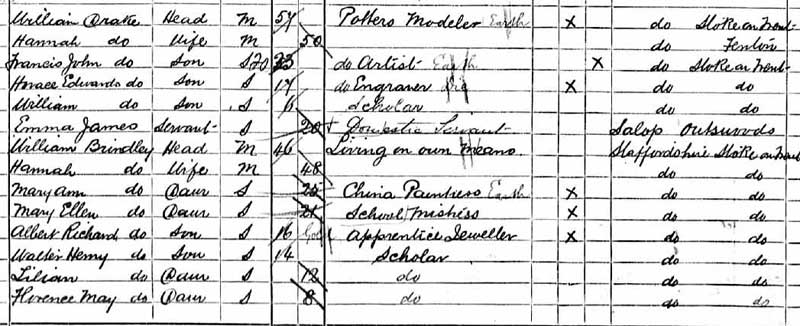 William Drake Head M 57 Potters Modeler Earth X do Stoke on Trent
Hannah do Wife M 50 do Fenton
Francis John do Son S 20 23 do Artist Earth X do Stoke on Trent
Horace Edwards do Son S 17 do Engraver X do do
William do Son S 6 Scholar do do
Emma James Servant S 20 Domestic Servant Salop
William Brindley Head M 46 Living on own Means Staffordshire Stoke on Trent
Hannah do Wife M 48 do do
Mary Ann do Daur S Earth China Paintress X do do
Mary Ellen do Daur S 21 School Mistress X do do
Albert Richard do Son S 16 Gold Apprentice Jeweller X do do
Walter Henry do Son S 14 Scholar do do
Lilian do Daur S 12 do do do
Florence May do Daur S 8 do do do